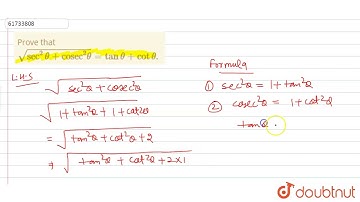 61733808
Prove that
√sec²θ + cosec²θ = tan θ + cot θ.
L.H.S
√sec²θ + cosec²θ
√1 + tan²θ + 1 + cot²θ
= √tan²θ + cot²θ + 2
⇒ √tan²θ + cot²θ + 2×1
Formula
① sec²θ = 1 + tan²θ
② cosec²θ = 1 + cot²θ
tanθ ·
doubtnut